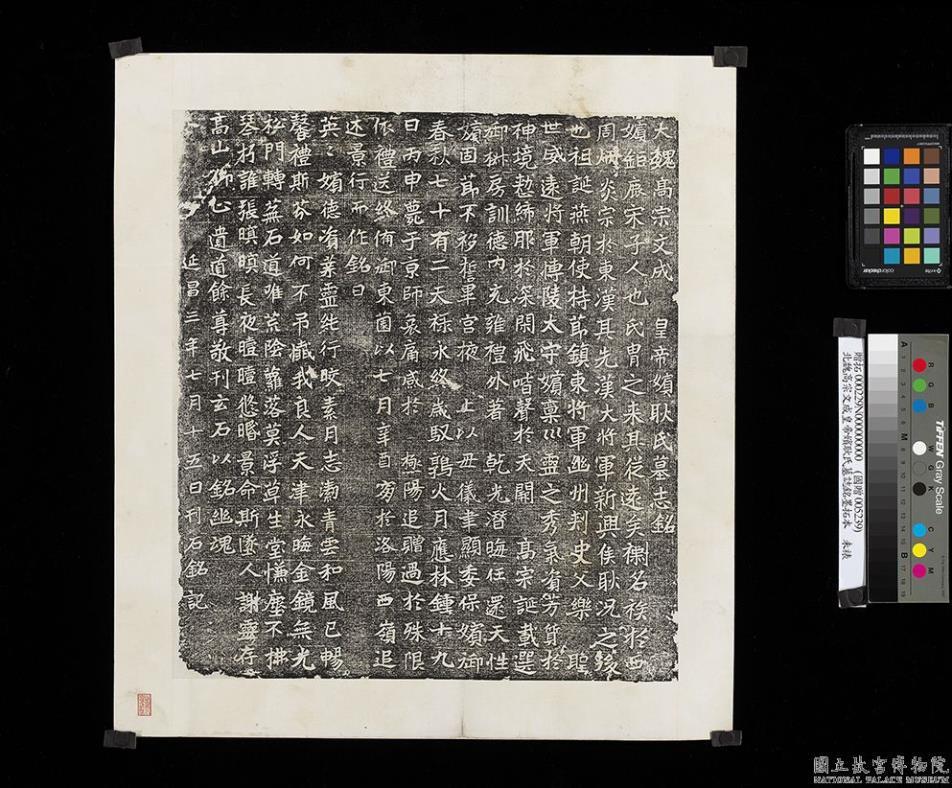 大魏高宗文成皇帝嬪耿氏墓志銘
嬪鉅鹿宋子人也氏冑之来其從遠矣禰名族於西
周炳炎宗於東漢其先漢大将軍新興侯耿況之後
也祖誕燕朝使持莭鎮東将軍幽州刾史父樂聖
世威遠将軍博陵太守嬪稟巛靈之秀氣資芳質於
神境懃締耶於深閨飛喈聲於天闕高宗誕載選
御椒房訓德內充雍禮外著乾光潜晦任還天性
嬪固莭不移誓畢宮掖上以毋儀聿顯委保嬪御
春秋七十有二天祿永終歲馭鶉火月應林鍾十九
日丙申薨于京師哀痛慼於極陽追贈過於殊限
依禮送終俻御東園以七月辛酉窆於洛陽西嶺追
述景行而作銘曰
英英嬪德資業靈純行皎素月志渤青雲和風已暢
馨禮斯芬如何不吊殲我良人天津永晦金鏡無光
松門轉蕪石道唯荒陰蘿落莫浮草生堂憮塵不拂
琴朽誰張暝暝長夜曀曀悠昬景命斯墜人謝靈存
高山仰心遺道餘尊敬刊玄石以銘幽魂
延昌三年七月十五日刊石銘記
贈拓000229N000000000 (國贈005239)
北魏高宗文成皇帝嬪耿氏墓誌銘墨拓本 未裱
colorchecker
Tiffen Gray Scale
R G B W G K C Y M
A 1 2 3 4 5 6 M 8 9 10 B 11 12 13 14 15 16 17 18 19
國立故宮博物院
NATIONAL PALACE MUSEUM